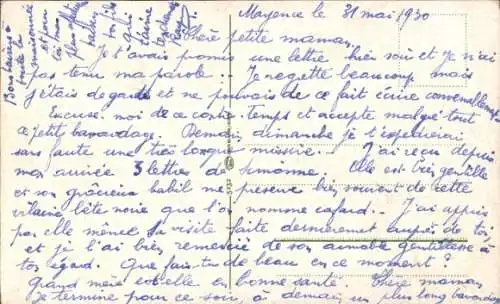 Mayence le 31 mai 1930
Chère petite maman,
Je t'avais promis une lettre hier soir et je n'ai
pas tenu ma parole. Je regrette beaucoup mais
j'étais de garde et ne pouvais de ce fait écrire convenablement.
Excuse moi de ce contre-temps et accepte malgré tout
ce petit bavardage. Demain dimanche je t'expédierai
sans faute une très longue missive. J'ai reçu depuis
mon arrivée 3 lettres de Simonne. Elle est très gentille
et son gracieux babil me préserve bien souvent de cette
vilaine bête noire que l'on nomme cafard. J'ai appris
par elle même sa visite faite dernièrement auprès de toi,
et je l'ai bien remerciée de son aimable gentillesse à
ton égard. Que fais-tu de beau en ce moment?
Grand mère est-elle en bonne santé. Chère maman,
je termine pour ce soir, à demain un plus long bavardage
Bons baisers à
toute la
maisonnée
et pour
toi mon
plus
baiser
ton fils
qui
t'aime
3732